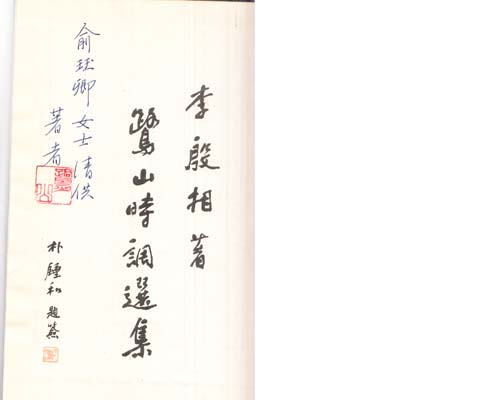 李殷相著
鷺山時調選集
俞珏卿 女士 清供
著者
朴鍾和 題簽